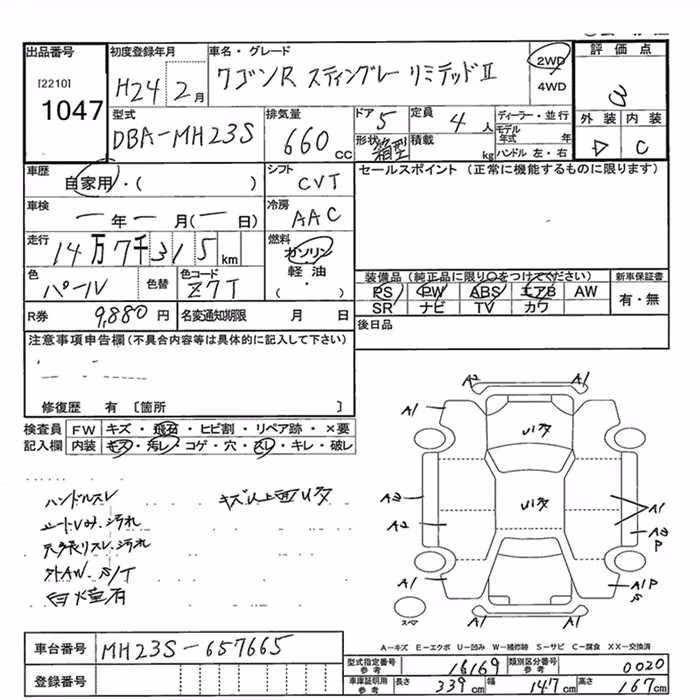 出品番号
[2210]
1047
初度登録年月
H24 2月
車名・グレード
ワゴンR スティングレー リミテッドⅡ
2WD
4WD
評価点
3
外装 内装
D C
型式
DBA-MH23S
排気量
660cc
ドア 5
定員 4人
形状 箱型
積載 kg
ディーラー・並行
モデル年式 年
ハンドル 左・右
車歴
自家用・( )
シフト
CVT
セールスポイント (正常に機能するものに限ります)
車検
ー年ー月(ー日)
冷房
AAC
走行
14万7千315km
燃料
ガソリン
軽油
( )
色
パール
色替
色コード
Z7T
装備品 (純正品に限り○をつけてください)
PS PW ABS エアB AW
SR ナビ TV カワ
新車保証書
有・無
R券
9,880円
名変通知期限 月 日
後日品
注意事項申告欄 (不具合内容等は具体的に記入して下さい)
修復歴 有 〔箇所 〕
検査員記入欄
FW キズ・飛石・ヒビ割・リペア跡・×要
内装 キズ・汚レ・コゲ・穴・スレ・キレ・破レ
ハンドルスレ
シートしみ.汚れ
天張りスレ.汚れ
外AW.S/T
キズ以上凹U多
A2 A1
A1
U1多
A3
A2
U1多
A1
A3
P
A1
A1P
S
スペア
A1 A1
A-キズ E-エクボ U-凹み W-補修跡 S-サビ C-腐食 XX-交換済
車台番号
MH23S-657665
登録番号
型式指定番号 参考
16169
類別区分番号 参考
0020
車庫証明用 参考
長さ 339cm
幅 147cm
高さ 167cm